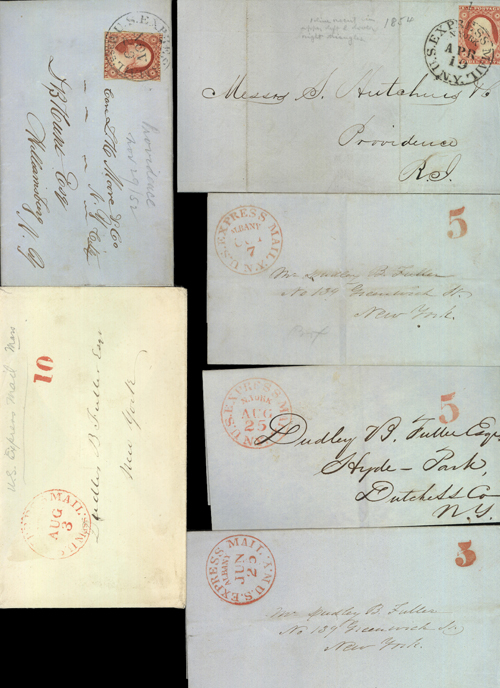 U.S.EXPRESS
J B Hart Esq
Care L M Moore & Co
N. Y. City
Williamsburg N. Y.
Providence
Nov 29/52
1854
U.S.EXPRESS MAIL.N.Y.
APR
19
Messrs S. Hutchins &
Providence
R.I.
U.S.EXPRESS MAIL.N.Y.
ALBANY
7
5
Mr Dudley B. Fuller
No 139 Greenwich St.
New York.
U.S. Express Mail
10
Dudley B Fuller Esq
New York
MAIL
AUG
3
U.S.EXPRESS MAIL
N.YORK
AUG
25
5
Dudley B. Fuller Esq
Hyde-Park,
Dutchess Co
N.Y.
U.S.EXPRESS MAIL.N.Y.
ALBANY
JUN
25
5
Mr Dudley B. Fuller
No 139 Greenwich St
New York.